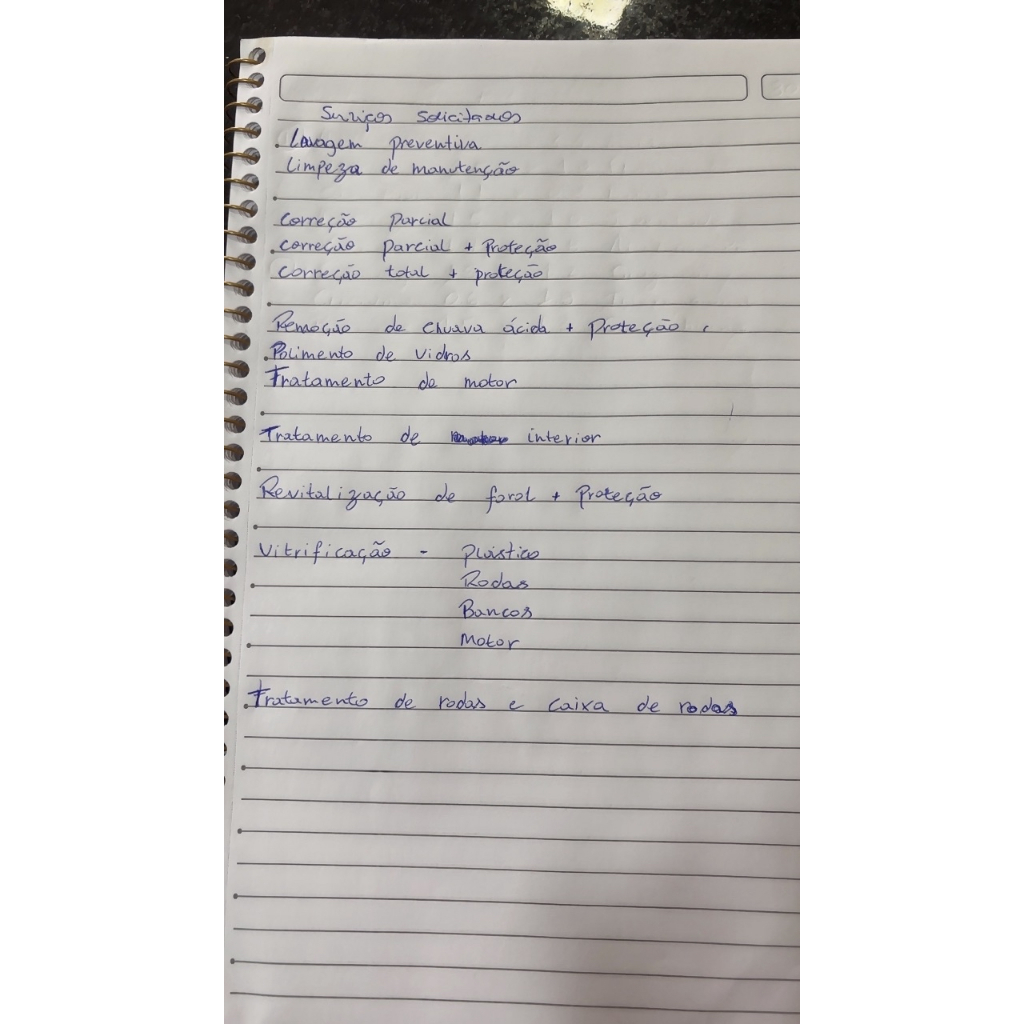 Serviços Solicitados
Lavagem preventiva
Limpeza de manutenção
Correção Parcial
correção parcial + Proteção
correção total + proteção
Remoção de chuava ácida + Proteção
Polimento de vidros
Tratamento de motor
Tratamento de interior
Revitalização de farol + Proteção
Vitrificação - Plástico
Rodas
Bancos
Motor
Tratamento de rodas e caixa de rodas